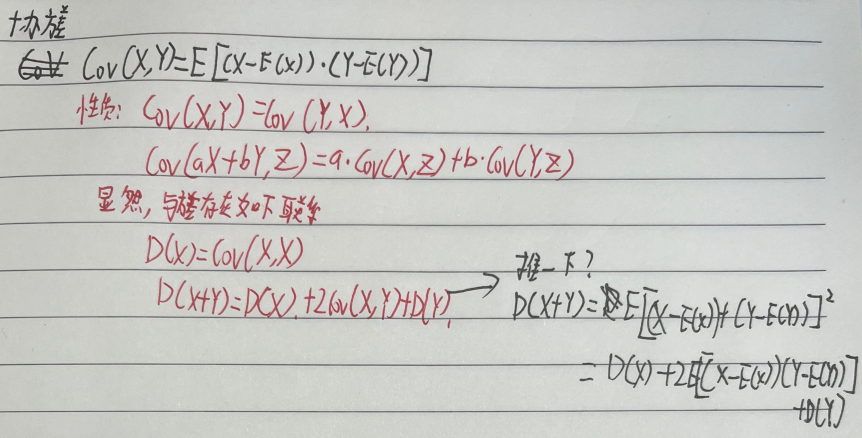 协方差
Cov(X,Y)=E[(X-E(X))·(Y-E(Y))]
性质: Cov(X,Y)=Cov(Y,X).
Cov(aX+bY,Z)=a·Cov(X,Z)+b·Cov(Y,Z)
显然,与方差存在如下联系
D(X)=Cov(X,X)
D(X+Y)=D(X)+2Cov(X,Y)+D(Y).
→ 推一下?
D(X+Y)=E[(X-E(X))+(Y-E(Y))]²
=D(X)+2E[(X-E(X))(Y-E(Y))]
+D(Y)